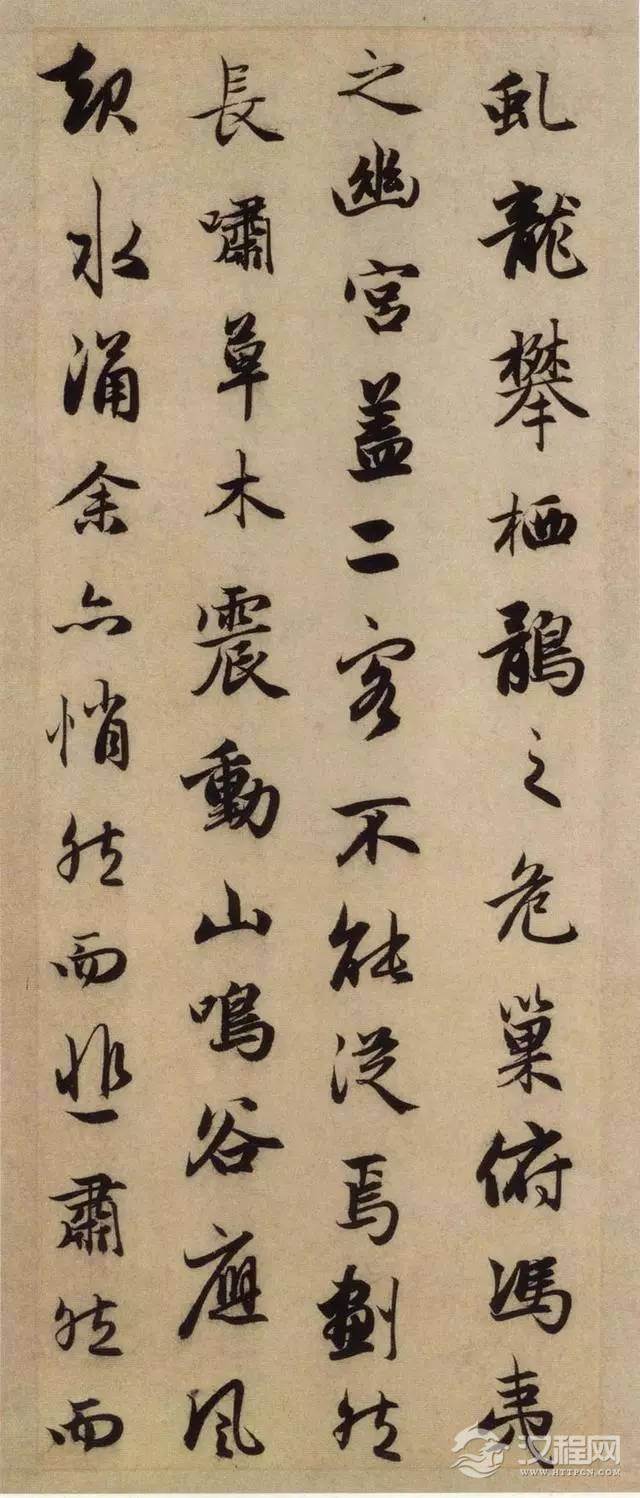 虬龍攀栖鶻之危巢俯馮夷
之幽宮蓋二客不能從焉劃然
長嘯草木震動山鳴谷應風
起水涌余亦悄然而悲肅然而
汉程网
WWW.HTTPCN.COM